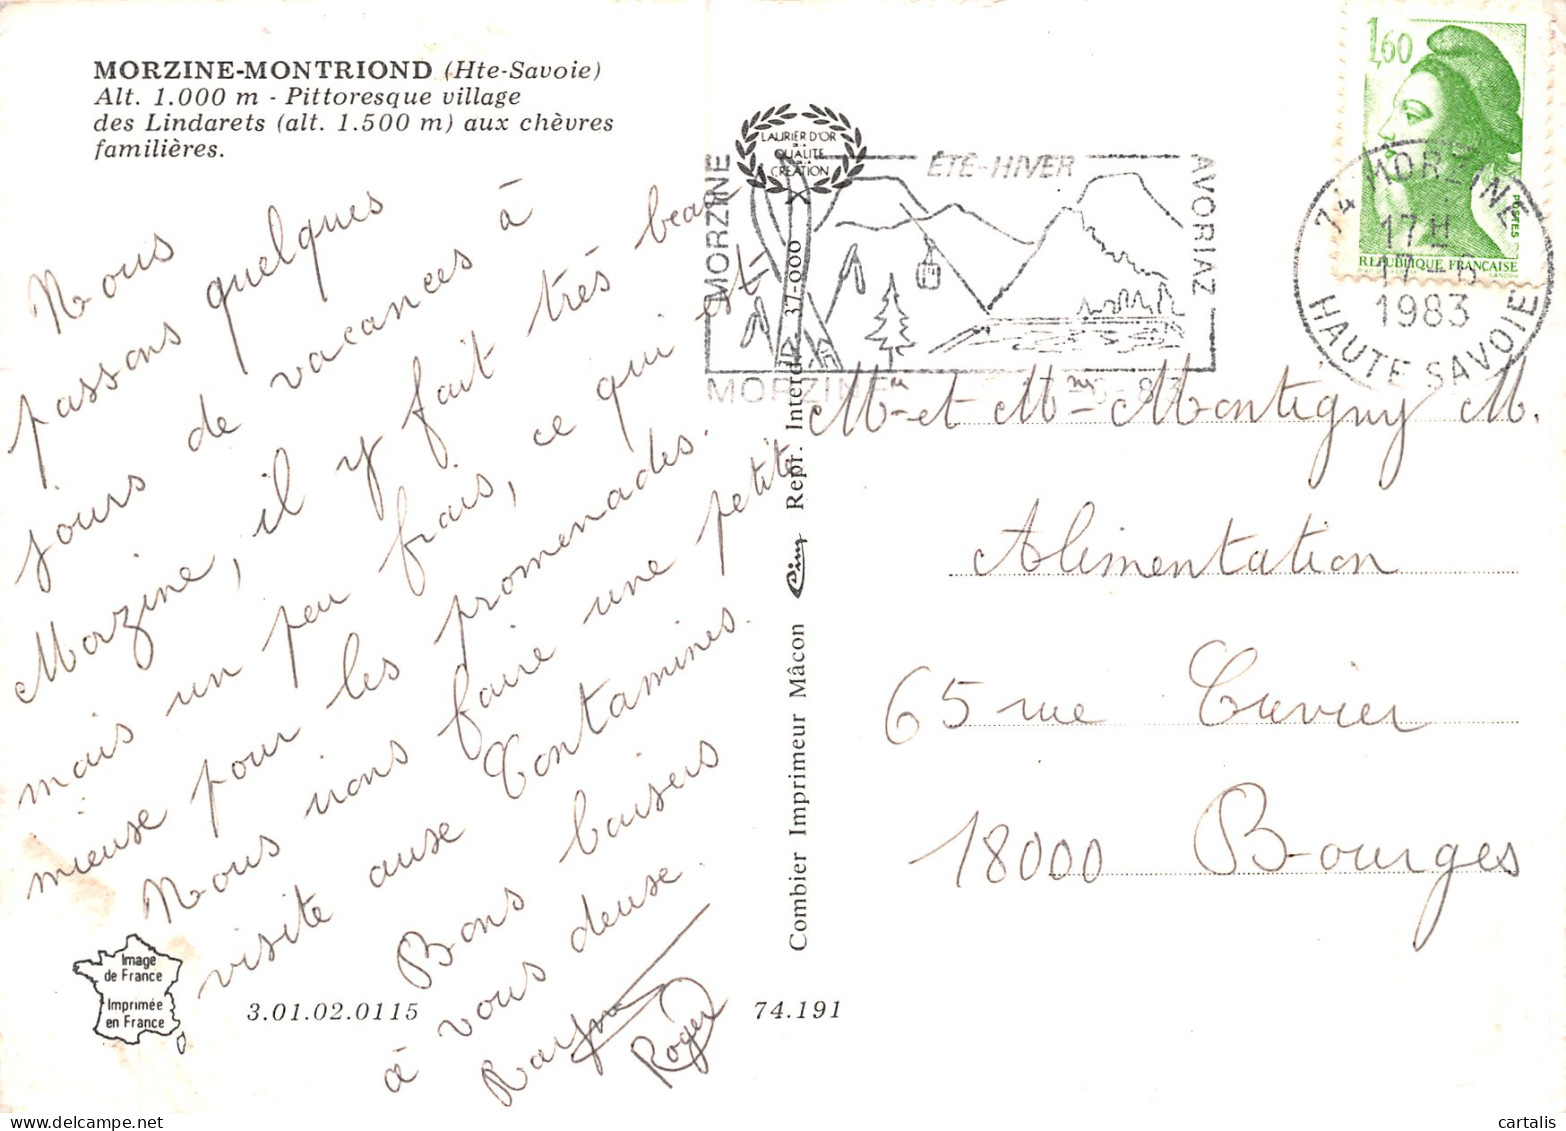 MORZINE-MONTRIOND (Hte-Savoie)
Alt. 1.000 m - Pittoresque village
des Lindarets (alt. 1.500 m) aux chèvres
familières.
Nous
passons quelques
jours de vacances à
Morzine, il y fait très beau
mais un peu frais, ce qui est
mieuse pour les promenades.
Nous irons faire une petite
visite ause Contamines.
Bons baisers
à vous deuse.
Roger
Image
de France
Imprimée
en France
3.01.02.0115
74.191
Combier Imprimeur Mâcon Cim Repr. Interd. 37.000
LAURIER D'OR
DE LA
QUALITE
DE LA
CREATION
MORZINE
ÉTÉ-HIVER
AVORIAZ
MORZINE
1,60
POSTES
REPUBLIQUE FRANÇAISE
74 MORZINE
17H
1983
HAUTE SAVOIE
Mr et Mme Montigny M.
Alimentation
65 rue Cuvier
18000 Bourges
cartalis